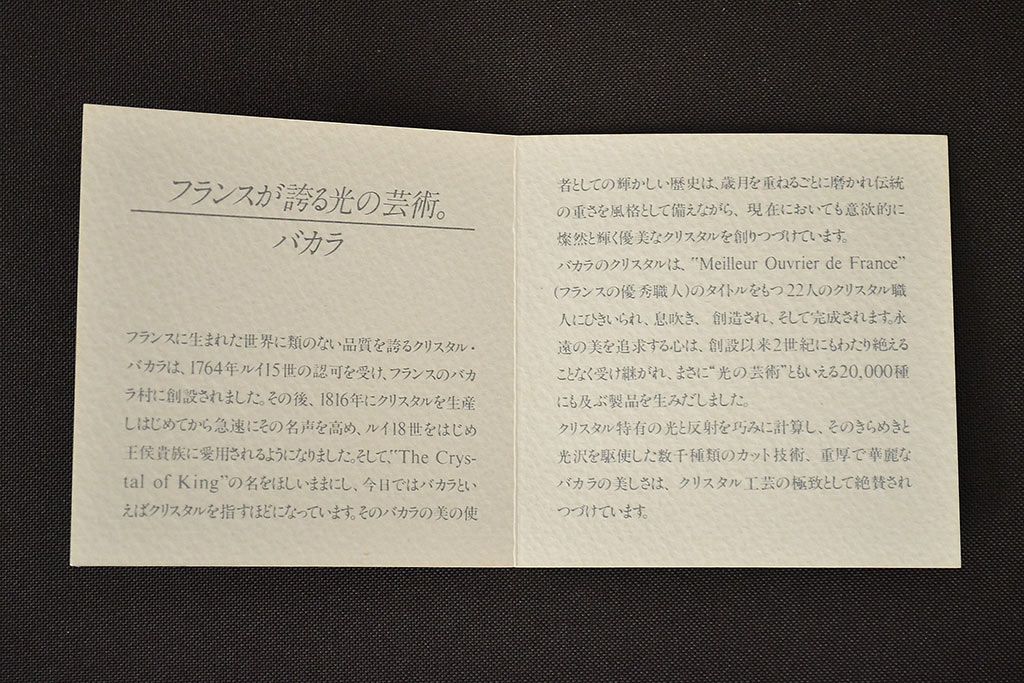 フランスが誇る光の芸術。
バカラ
フランスに生まれた世界に類のない品質を誇るクリスタル・
バカラは、1764年ルイ15世の認可を受け、フランスのバカ
ラ村に創設されました。その後、1816年にクリスタルを生産
しはじめてから急速にその名声を高め、ルイ18世をはじめ
王侯貴族に愛用されるようになりました。そして、“The Crys-
tal of King”の名をほしいままにし、今日ではバカラとい
えばクリスタルを指すほどになっています。そのバカラの美の使
者としての輝かしい歴史は、歳月を重ねるごとに磨かれ伝統
の重さを風格として備えながら、現在においても意欲的に
燦然と輝く優美なクリスタルを創りつづけています。
バカラのクリスタルは、“Meilleur Ouvrier de France”
(フランスの優秀職人)のタイトルをもつ22人のクリスタル職
人にひきいられ、息吹き、創造され、そして完成されます。永
遠の美を追求する心は、創設以来2世紀にもわたり絶える
ことなく受け継がれ、まさに“光の芸術”ともいえる20,000種
にも及ぶ製品を生みだしました。
クリスタル特有の光と反射を巧みに計算し、そのきらめきと
光沢を駆使した数千種類のカット技術、重厚で華麗な
バカラの美しさは、クリスタル工芸の極致として絶賛され
つづけています。